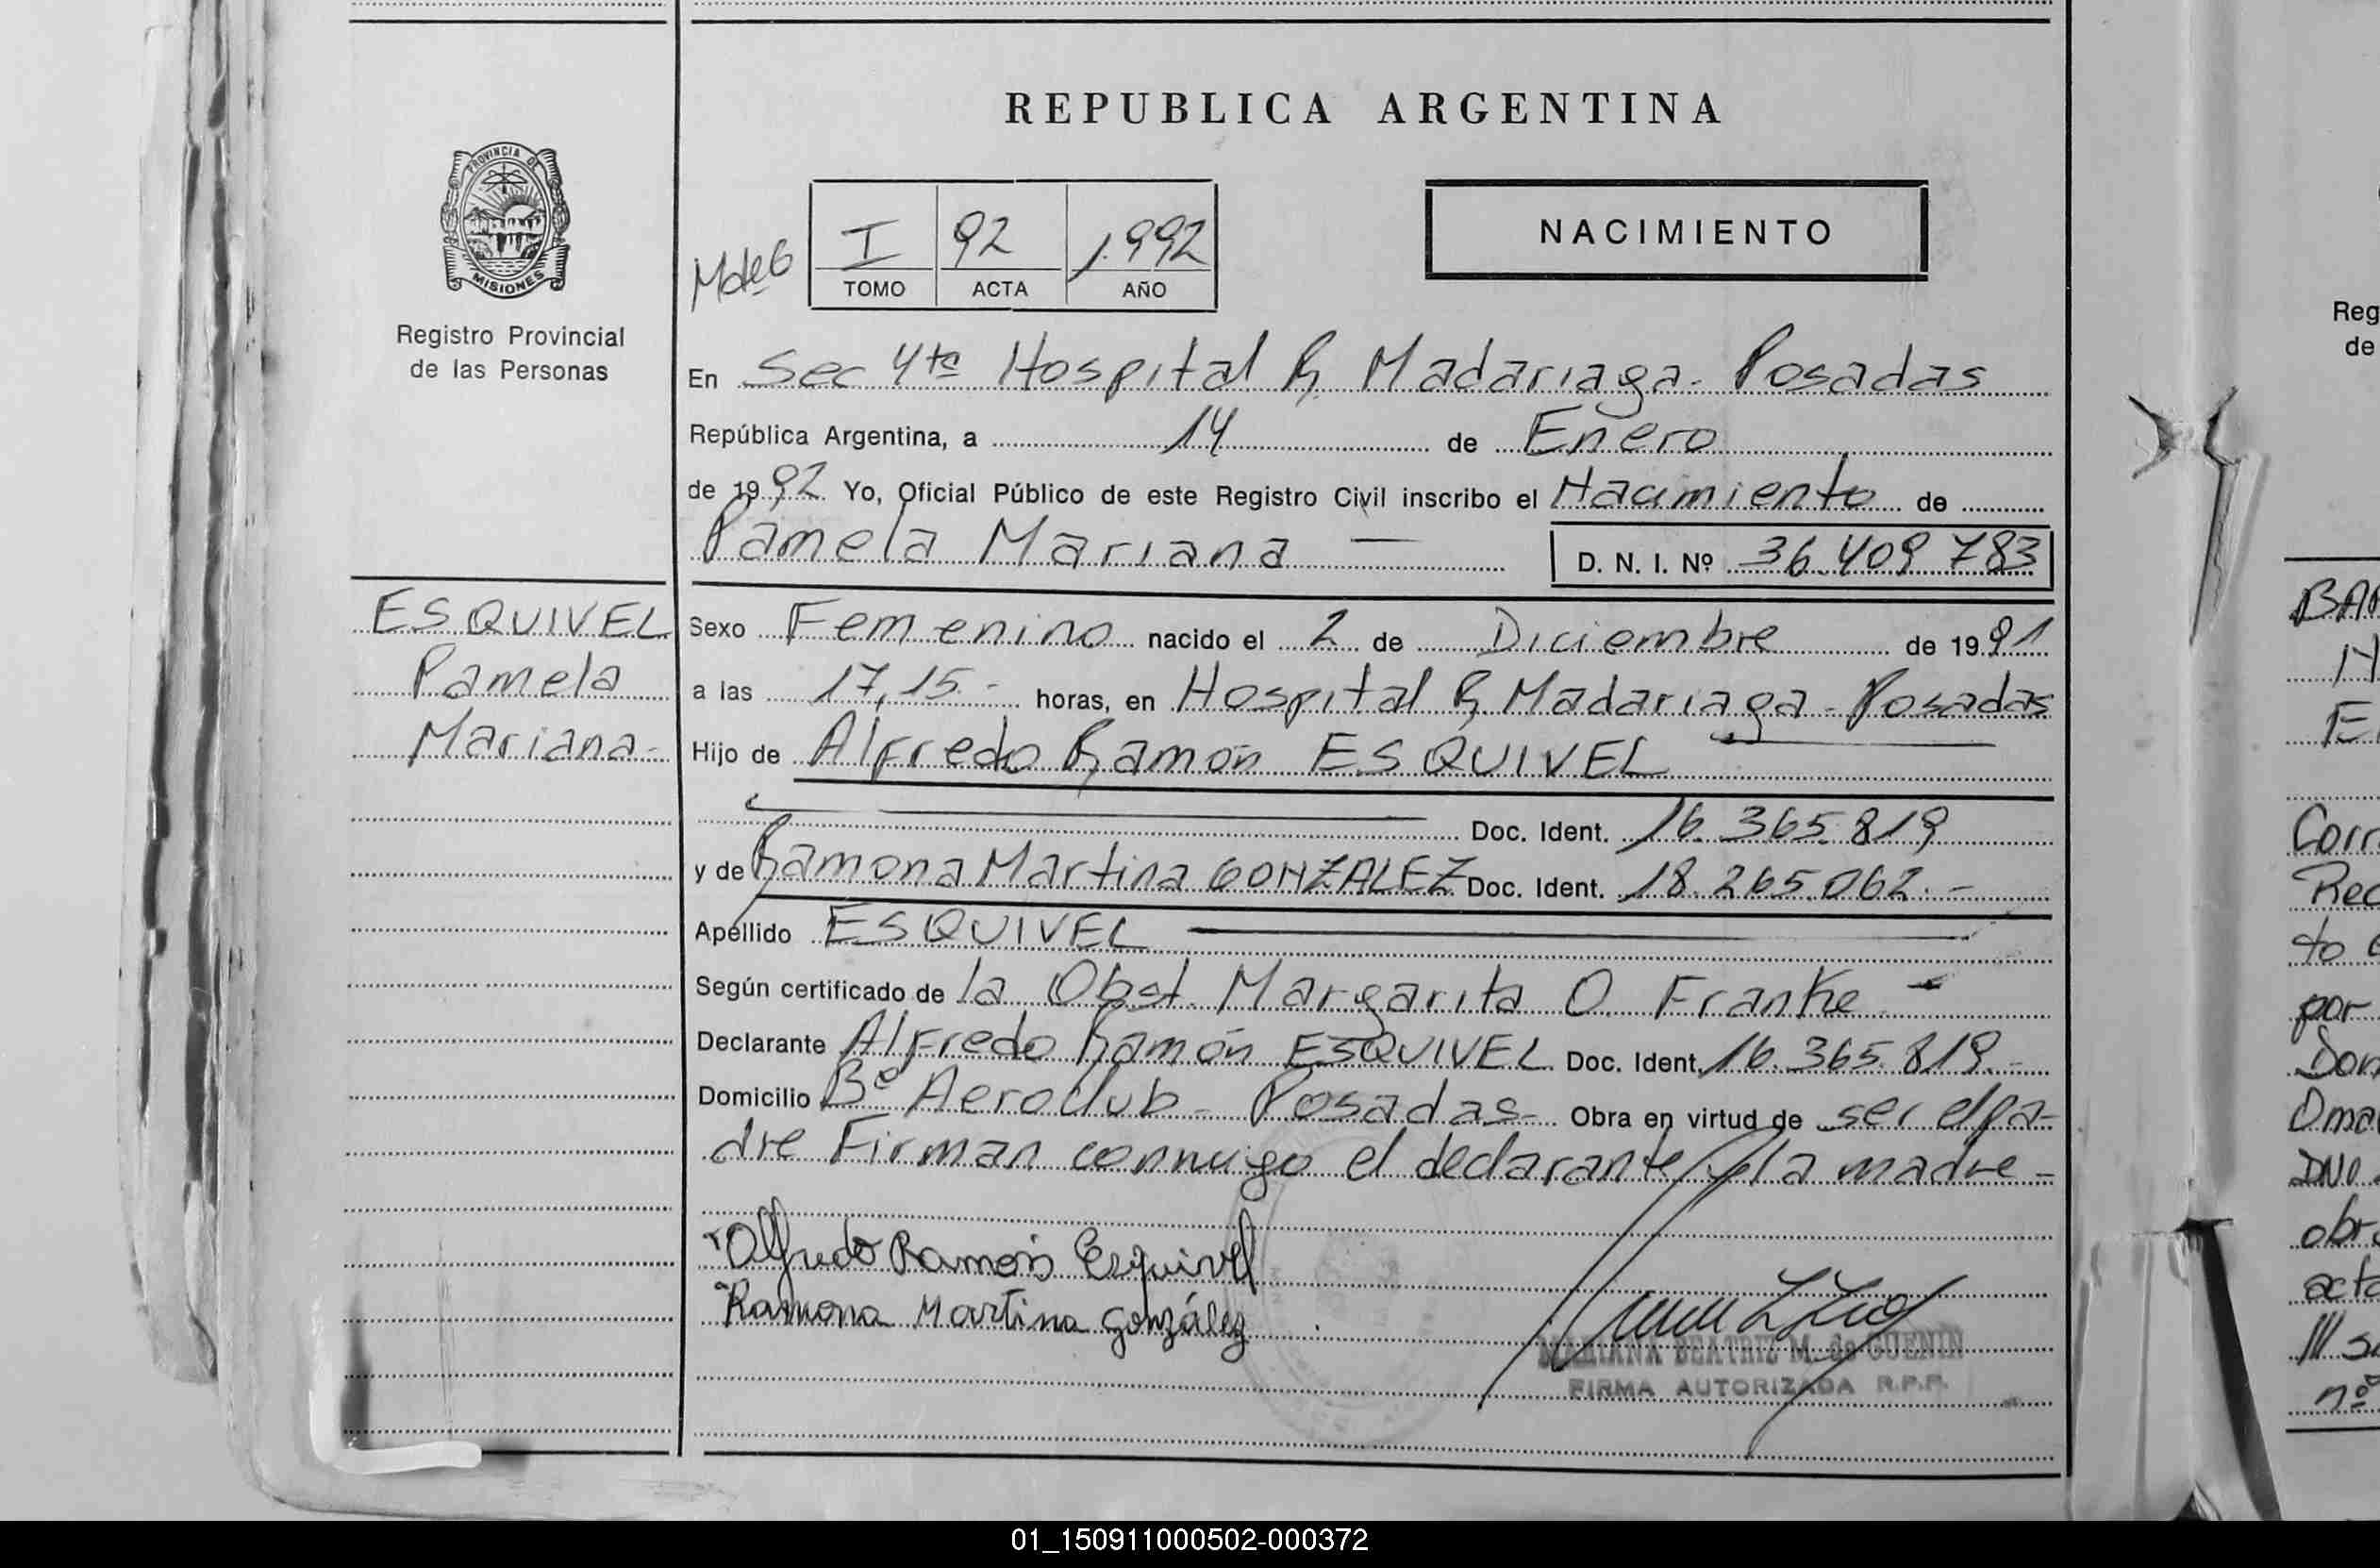 REPUBLICA ARGENTINA
PROVINCIA DE
MISIONES
Registro Provincial
de las Personas
I 92 1.992
TOMO ACTA AÑO
NACIMIENTO
En Sec 4ta Hospital R. Madariaga - Posadas
República Argentina, a 14 de Enero
de 1992 Yo, Oficial Público de este Registro Civil inscribo el Nacimiento de
Pamela Mariana —
D. N. I. Nº 36.409.783
ESQUIVEL
Pamela
Mariana -
Sexo Femenino nacido el 2 de Diciembre de 1991
a las 17,15.- horas, en Hospital R. Madariaga - Posadas
Hijo de Alfredo Ramón ESQUIVEL
Doc. Ident. 16.365.819
y de Ramona Martina GONZALEZ Doc. Ident. 18.265.062.-
Apellido ESQUIVEL
Según certificado de la Obst. Margarita O. Franke -
Declarante Alfredo Ramón ESQUIVEL Doc. Ident. 16.365.819.-
Domicilio Bº Aeroclub - Posadas - Obra en virtud de ser el pa-
dre Firman conmigo el declarante y la madre -
Alfredo Ramón Esquivel
Ramona Martina González
MARIANA BEATRIZ M. de GUENIN
FIRMA AUTORIZADA R.P.P.
Reg
de
Corr
Rec
to
por
Dom
Oma
DNI
obr
acta
III
nº
01_150911000502-000372